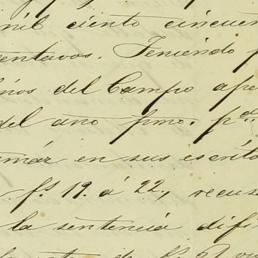 mil ciento cincuen
entavos. Teniendo p
ños del Campo ape
del año ppmo. pd
rmár en sus escrito
fs 19. á 22, recus
la sentencia difi